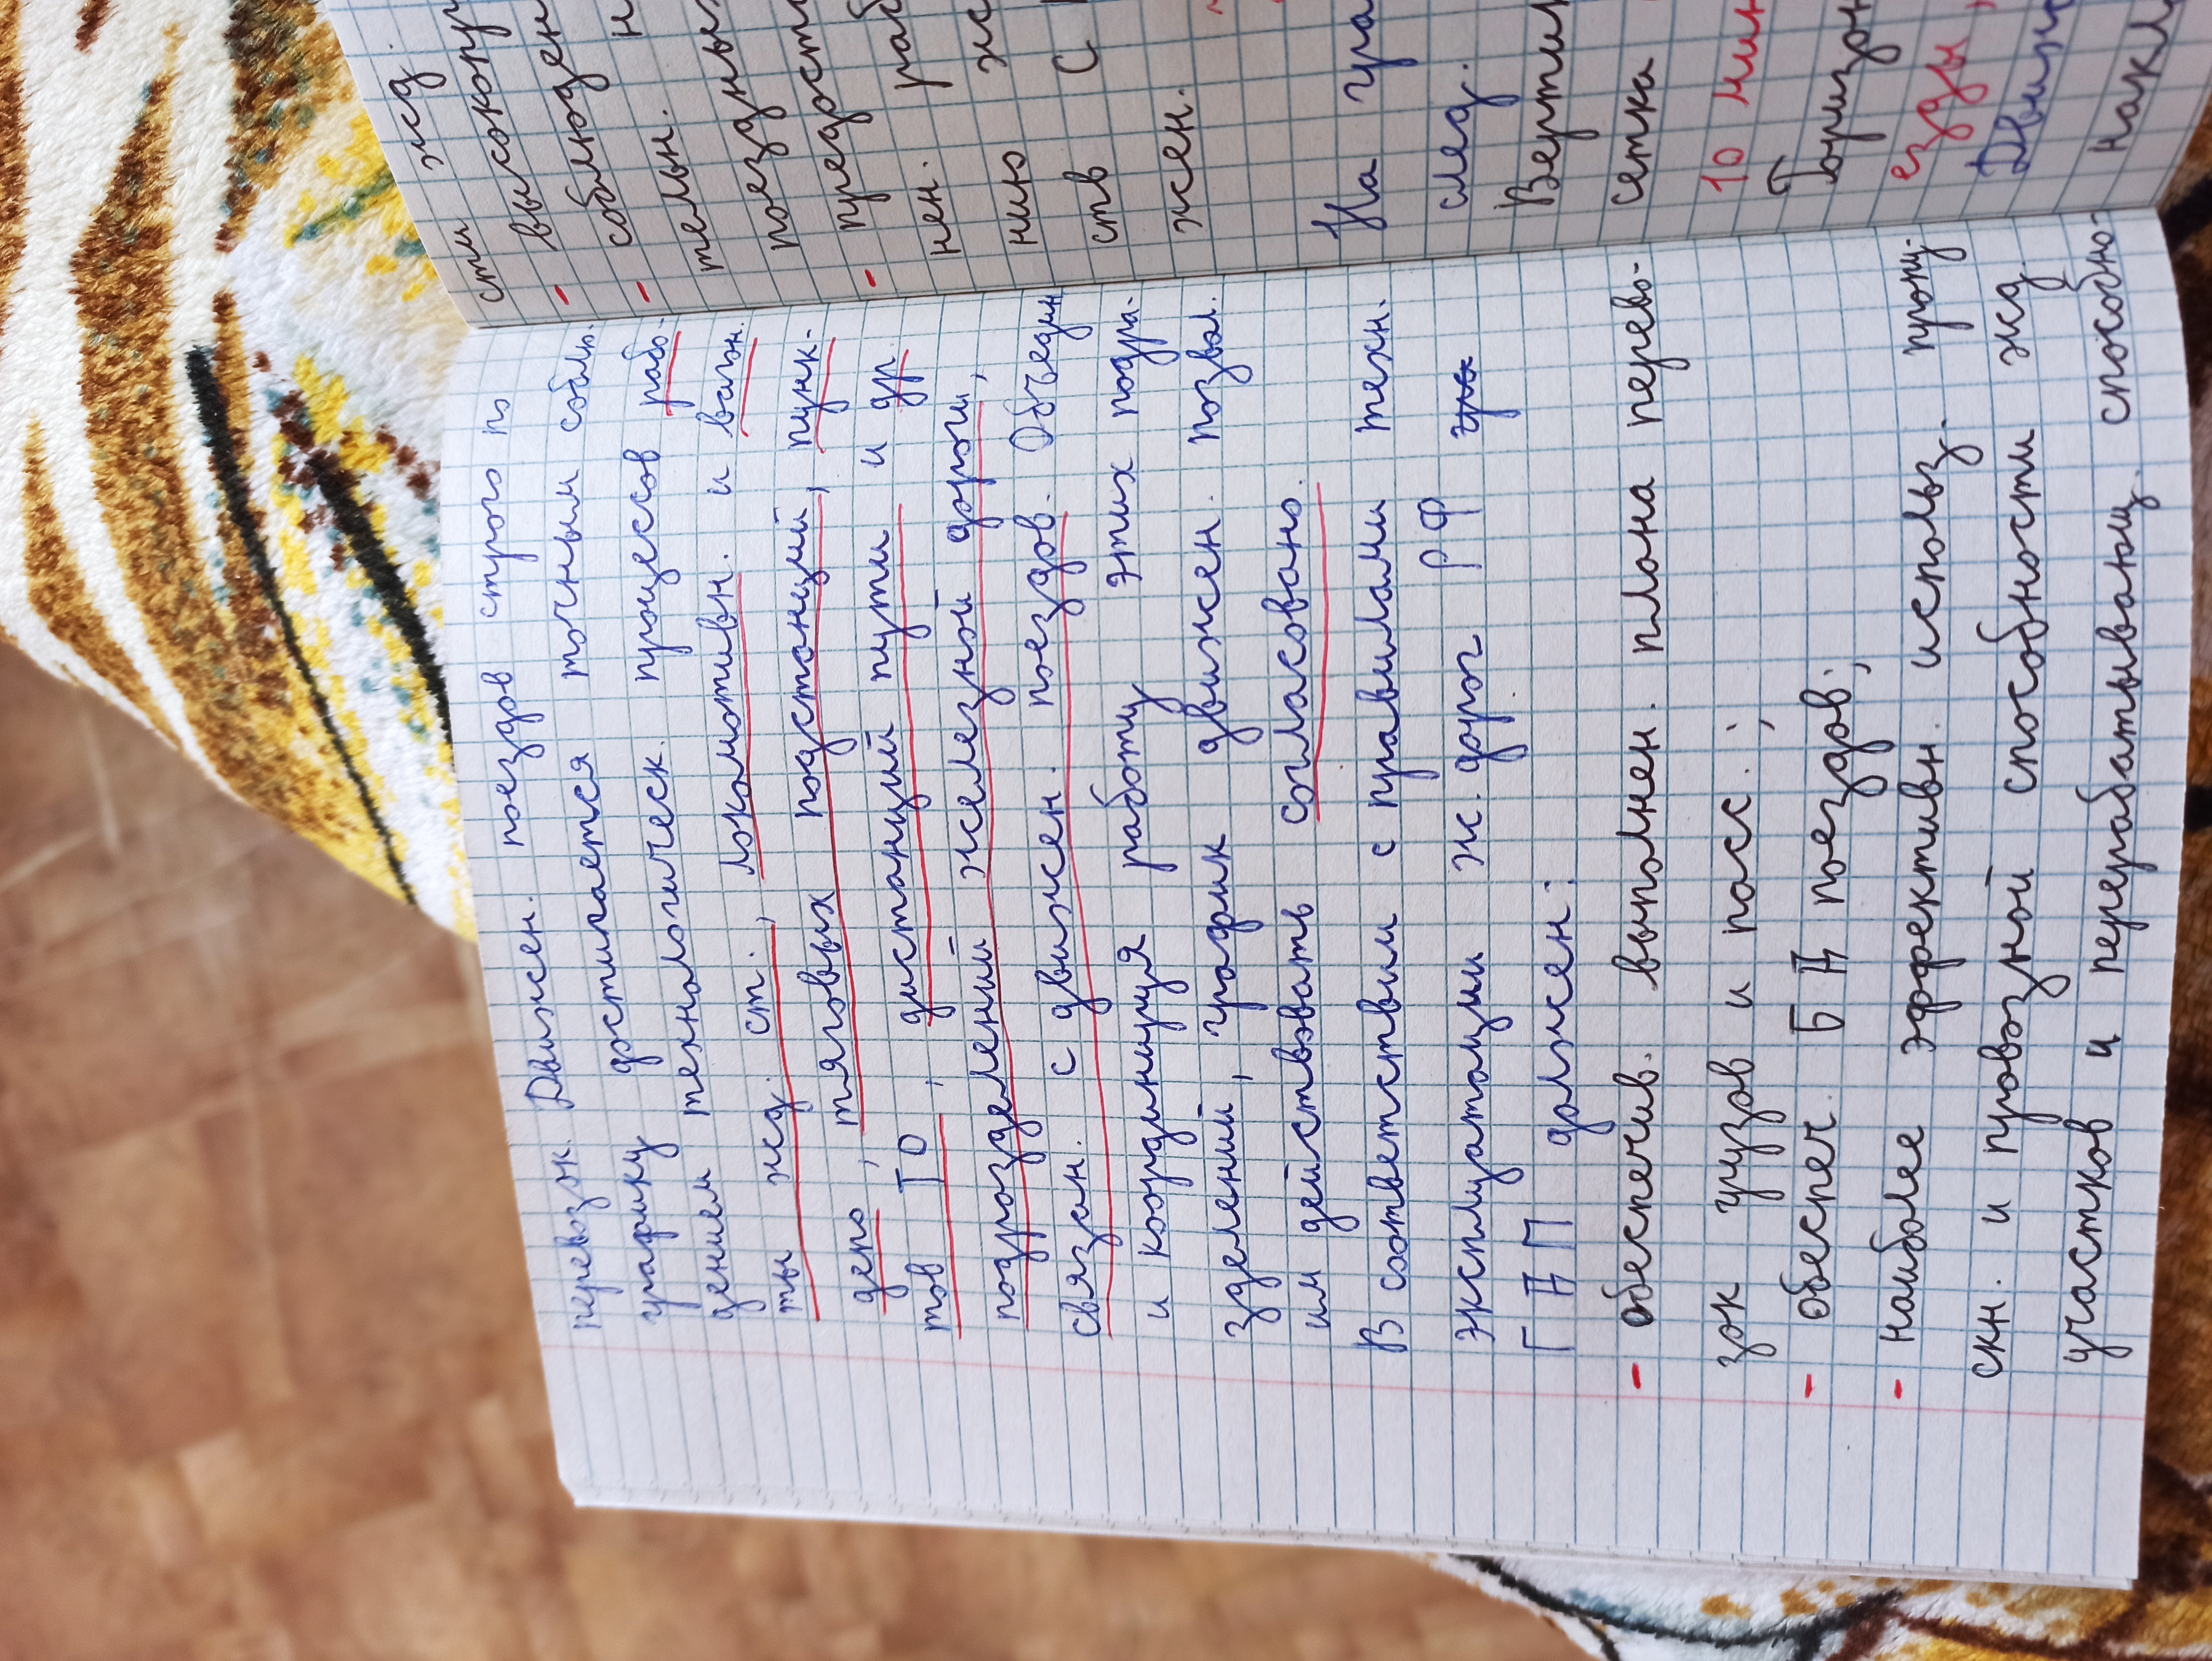 перевозок. Движен. поездов строго по
графику достигается точным соблю-
дением технологическ. процессов рабо-
ты жд. ст., локомотивн. и вагон.
депо, тяговых подстанций, пунк-
тов ТО, дистанций пути и др
подразделений железной дороги,
связан. с движен. поездов. Объедин
и координируя работу этих подра-
зделений, график движен. позвол.
им действовать согласовано.
В соответствии с правилами техн.
эксплуатации ж. дорог РФ
ГДП должен:
- обеспечив. выполнен. плана перево-
зок грузов и пасс.;
- обеспеч. БД поездов;
- наиболее эффективн. использ. пропу-
скн. и провозной способности жд.
участков и перерабатывающ. способно-
сти жд.
высокопр
- соблюден
- собл н
тельн.
поездны
предост
- нен. раб
нию ж
ств С
жен.
На гра
след.
Вертик
сетка
10 мин
Горизон
езды,
Движ
накл